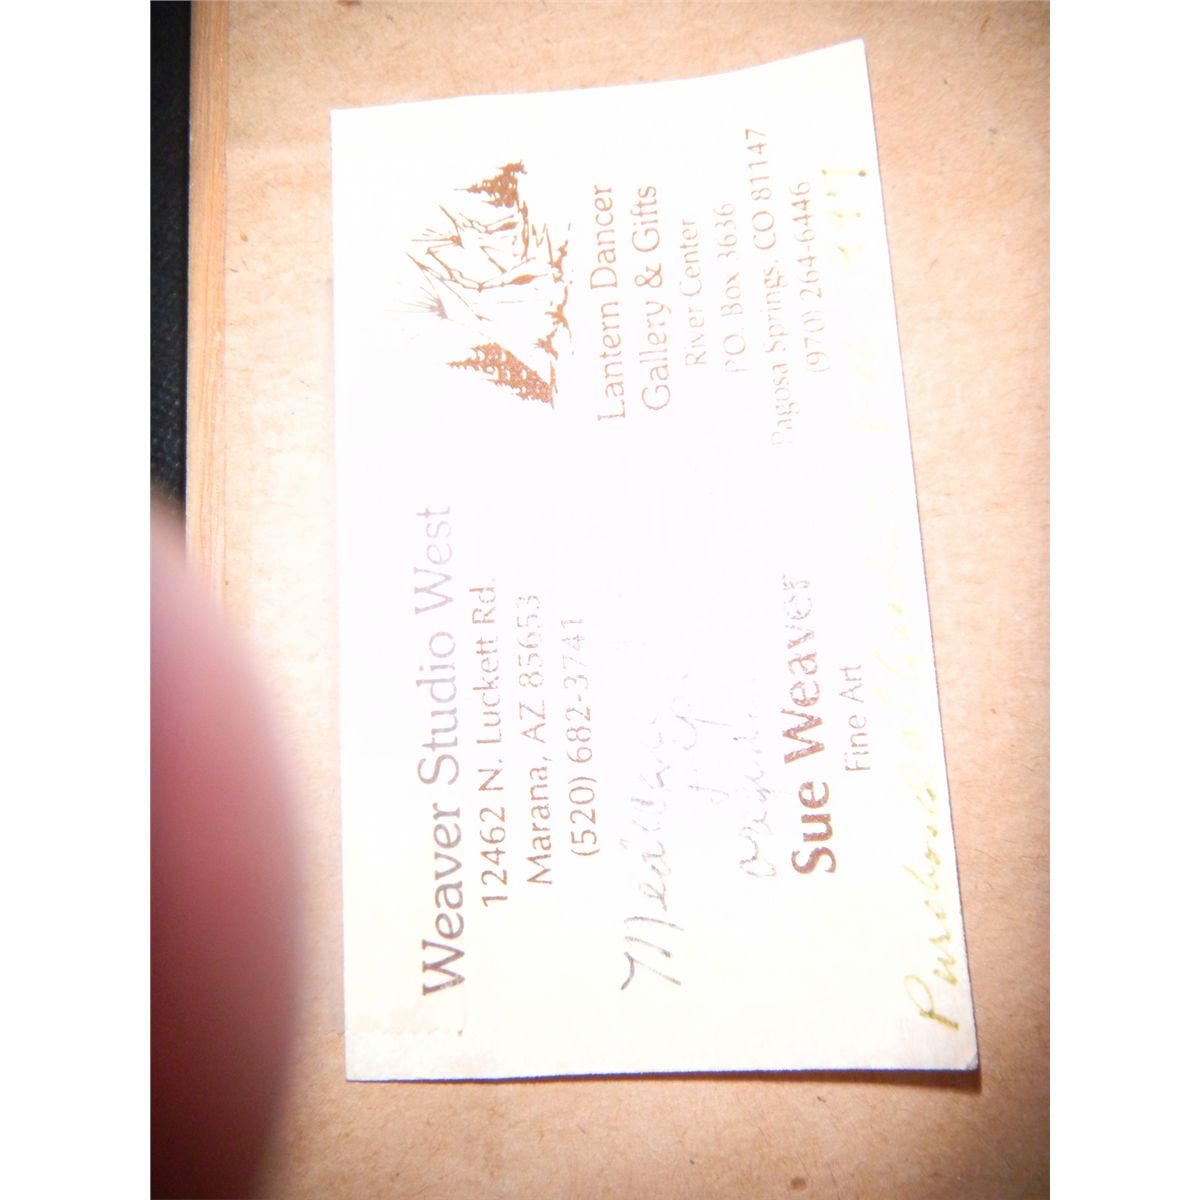 Weaver Studio West
12462 N. Luckett Rd.
Marana, AZ 85653
(520) 682-3741
Lantern Dancer
Gallery & Gifts
River Center
P.O. Box 3636
Pagosa Springs, CO 81147
(970) 264-6446
original
Sue Weaver
Fine Art
Purchased at